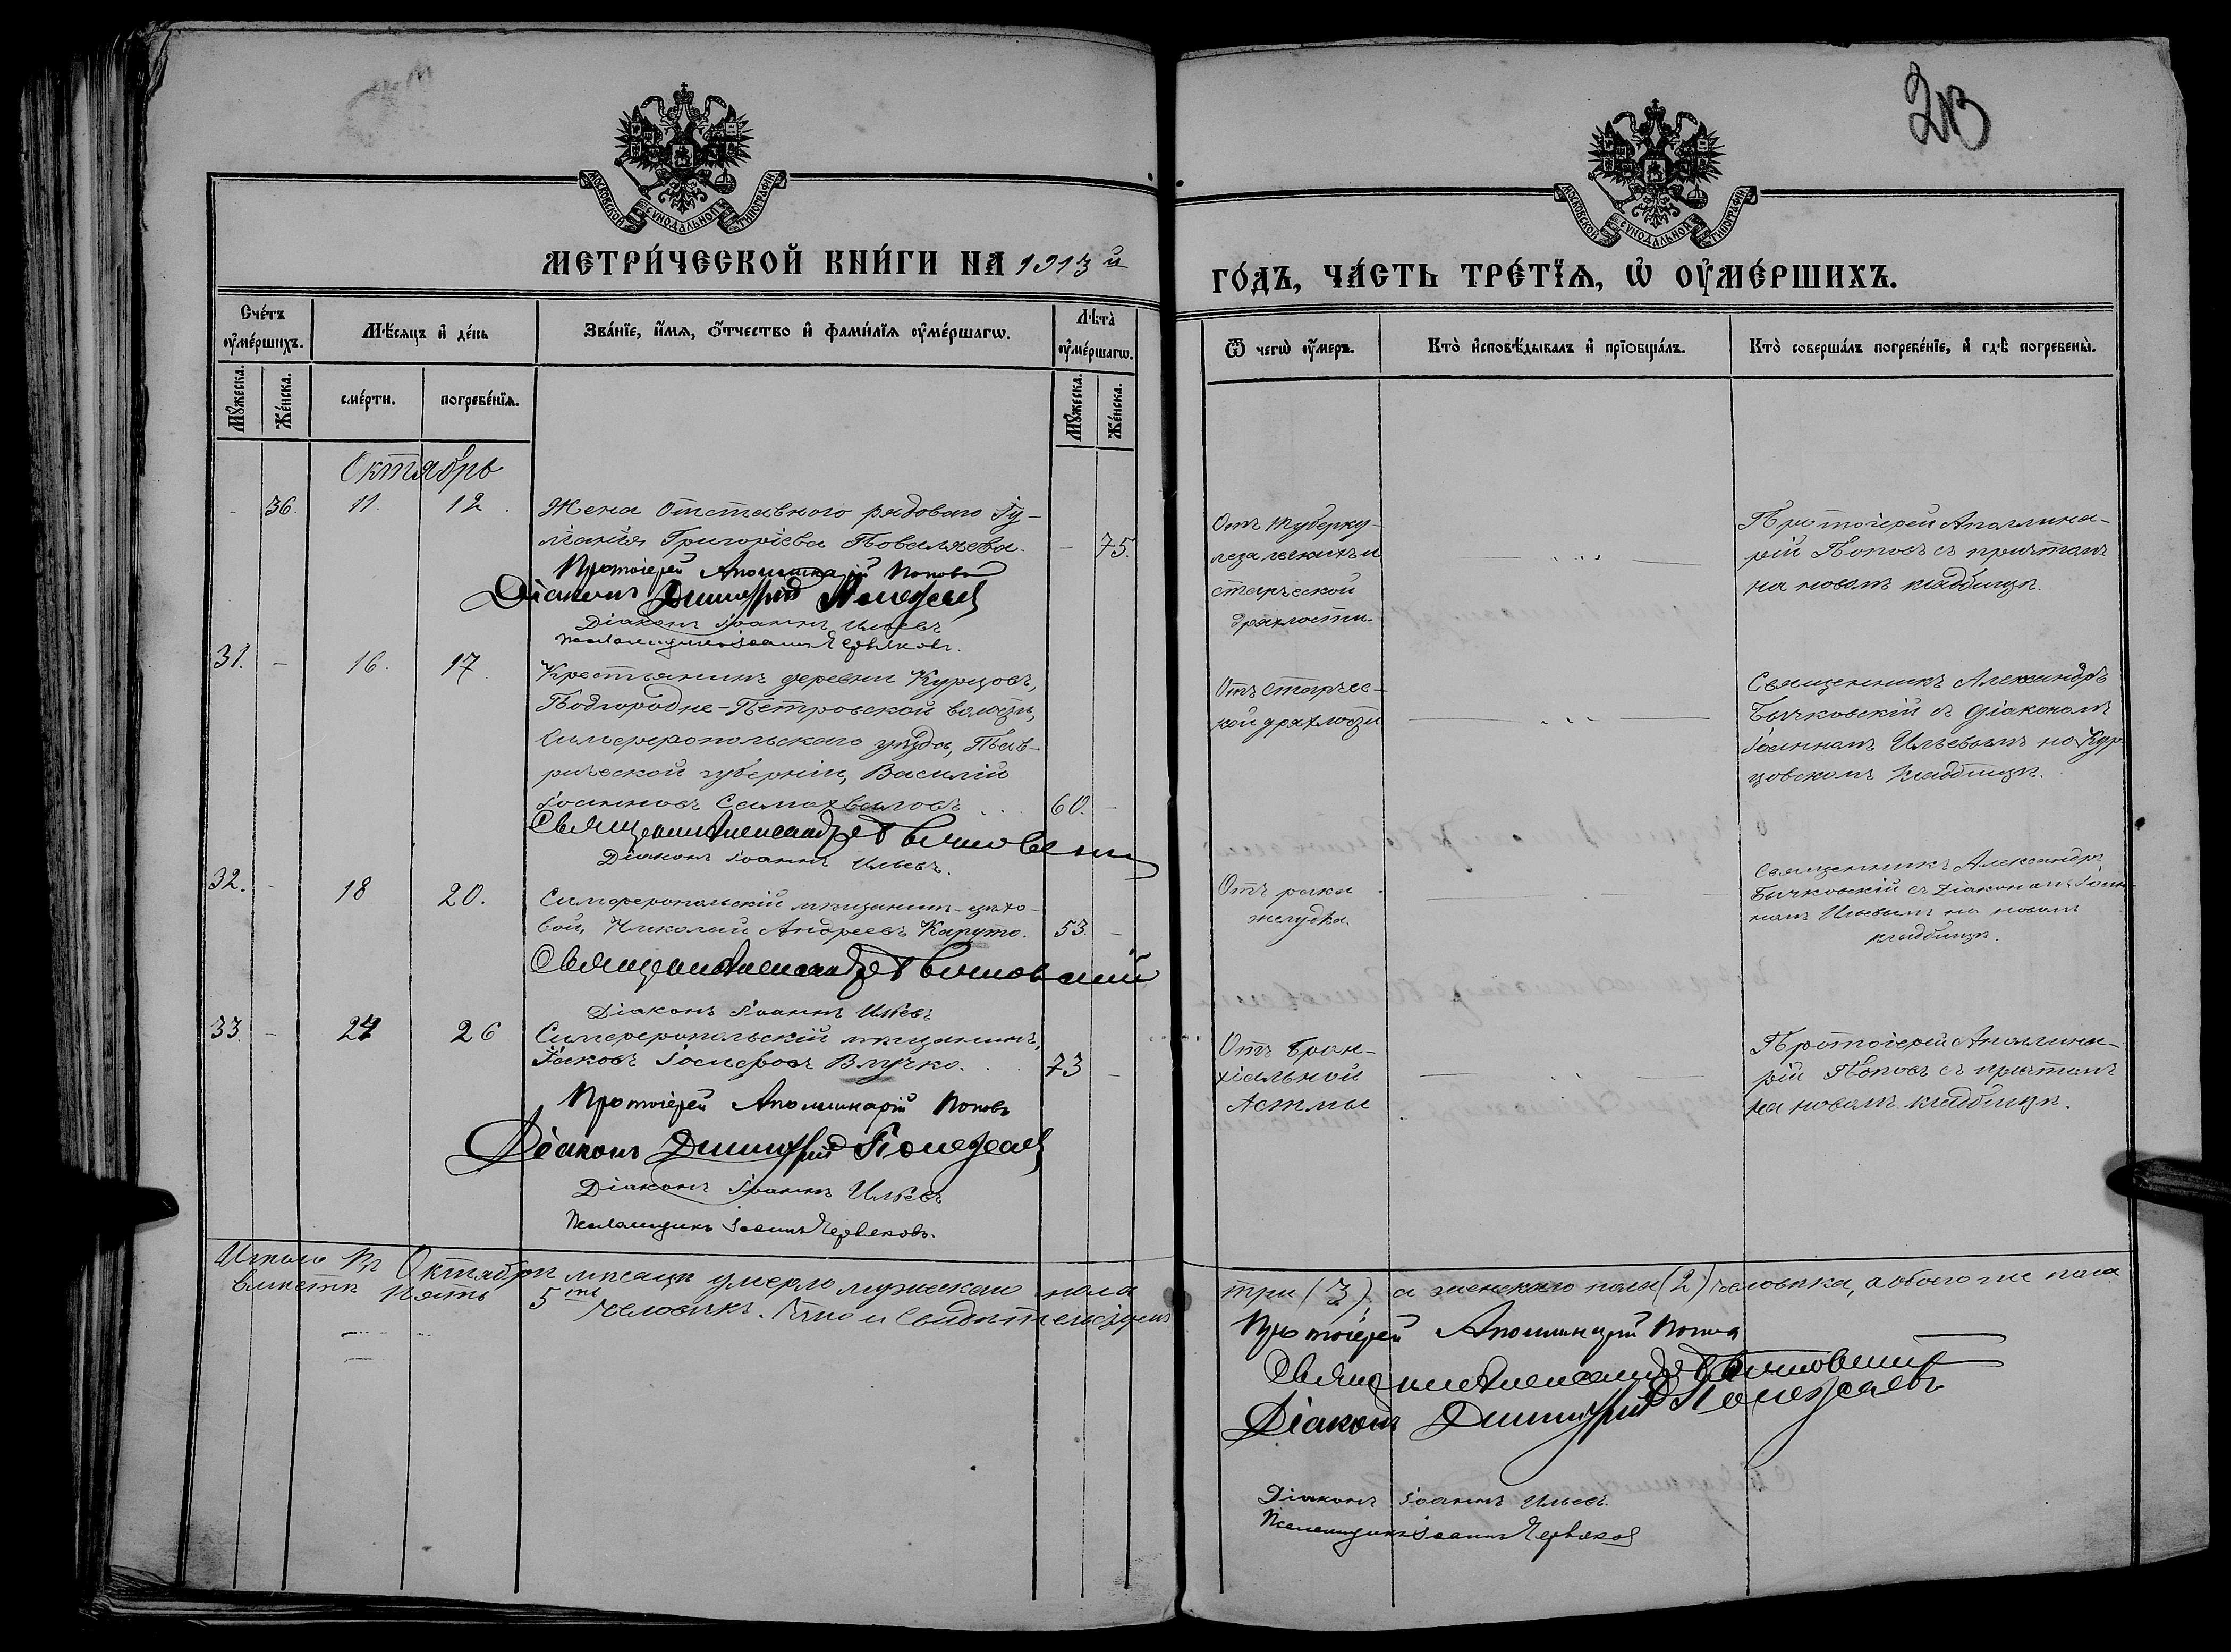 213
МОСКОВСКОЙ СѴНОДАЛЬНОЙ ТИПОГРАФІИ
МОСКОВСКОЙ СѴНОДАЛЬНОЙ ТИПОГРАФІИ
МЕТРИ́ЧЕСКОЙ КНИ́ГИ НА 1913 й
ГО́ДЪ, ЧА́СТЬ ТРЕ́ТЇѦ, Ѡ҆ ОУ҆МЕ́РШИХЪ.
Сче́тъ оу҆ме́ршихъ.
Мѣ́сяцъ и҆ де́нь
Зва́нїе, и҆́мя, ѻ҆́тчество и҆ фами́лїя оу҆ме́ршагѡ.
Лѣ́та оу҆ме́ршагѡ.
Ѿ чегѡ̀ оу҆́меръ.
Кто̀ и҆сповѣ́дывалъ и҆ прїѻбща́лъ.
Кто̀ соверша́лъ погребе́нїе, и҆ гдѣ̀ погребены̀.
Мꙋ́жеска.
Же́нска.
сме́рти.
погребе́нїя.
Мꙋ́жеска.
Же́нска.
Октябрь
36. 11. 12. Жена отставного рядового
Григоріева Поваляева. — 75.
Протоіерей Аполлинарій Поповъ
Діаконъ Димитрій
Діаконъ Іоаннъ Ильевъ
Псаломщикъ Іоаннъ Червяковъ.
Отъ туберку-
леза легкихъ и
старческой
дряхлости.
Протоіерей Аполлина-
рій Поповъ съ причтомъ
на новомъ кладбищѣ.
31. — 16. 17. Крестьянинъ деревни Курцовъ,
Подгородне-Петровской волости,
Симферопольскаго уѣзда, Тав-
рической губерніи, Василій
Іоанновъ Самохваловъ 60. —
Священникъ Александръ Бычковскій
Діаконъ Іоаннъ Ильевъ.
Отъ старчес-
кой дряхлости
Священникъ Александръ
Бычковскій съ діакономъ
Іоанномъ Ильевымъ на Кур-
цовскомъ кладбищѣ.
32. — 18 20. Симферопольскій мѣщанинъ-цехо-
вой, Николай Андреевъ Каруто. 53. —
Священникъ Александръ Бычковскій
Діаконъ Іоаннъ Ильевъ
Отъ рака
желудка.
Священникъ Александръ
Бычковскій съ діакономъ Іоан-
номъ Ильевымъ на новомъ
кладбищѣ.
33. — 24 26 Симферопольскій мѣщанинъ,
Іаковъ Іосифовъ Влучко. 73 —
Протоіерей Аполлинарій Поповъ
Діаконъ Димитрій
Діаконъ Іоаннъ Ильевъ
Псаломщикъ Іоаннъ Червяковъ.
Отъ Брон-
хіальной
Астмы
Протоіерей Аполлина-
рій Поповъ съ причтомъ
на новомъ кладбищѣ.
Итого въ Октябрѣ мѣсяцѣ умерло мужескаго пола три (3), а женскаго пола (2) человѣка, а обоего же пола
вмѣстѣ пять 5ть человѣкъ.
Протоіерей Аполлинарій Поповъ
Священникъ Александръ Бычковскій
Діаконъ Димитрій
Діаконъ Іоаннъ Ильевъ.
Псаломщикъ Іоаннъ Червяковъ